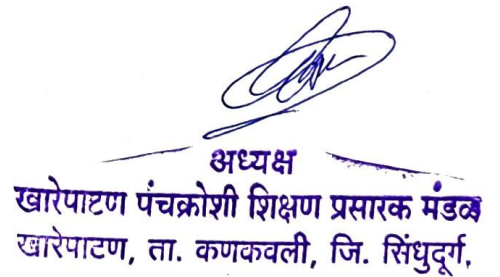 अध्यक्ष
खारेपाटण पंचक्रोशी शिक्षण प्रसारक मंडळ
खारेपाटण, ता. कणकवली, जि. सिंधुदुर्ग.